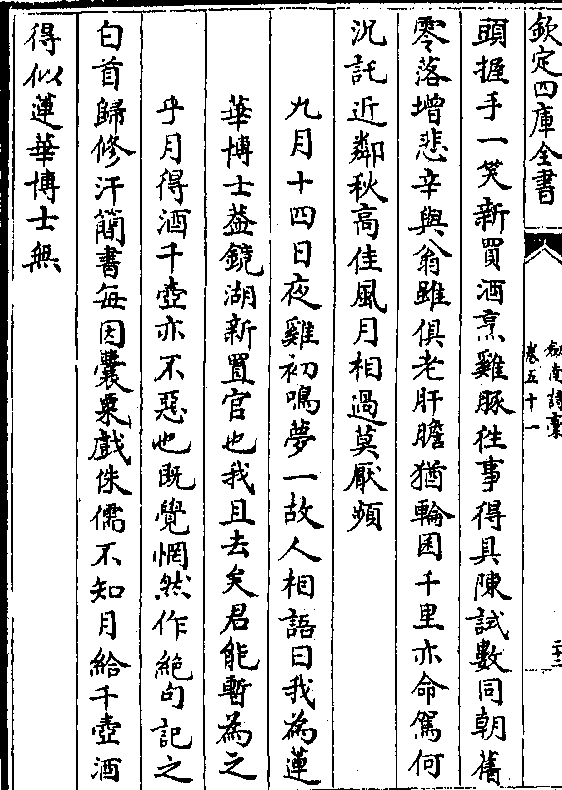 欽定四庫全書
劍南詩稾
卷五十一
二十二
頭握手一笑新買酒烹雞豚徃事得具陳試數同朝舊
零落增悲辛與翁雖俱老肝膽猶輪囷千里亦命駕何
況託近鄰秋高佳風月相過莫厭頻
九月十四日夜雞初鳴夢一故人相語曰我為蓮
華博士葢鏡湖新置官也我且去矣君能暫為之
乎月得酒千壺亦不惡也既覺惘然作絶句記之
白首歸修汗簡書每因囊粟戲侏儒不知月給千壺酒
得似蓮華博士無